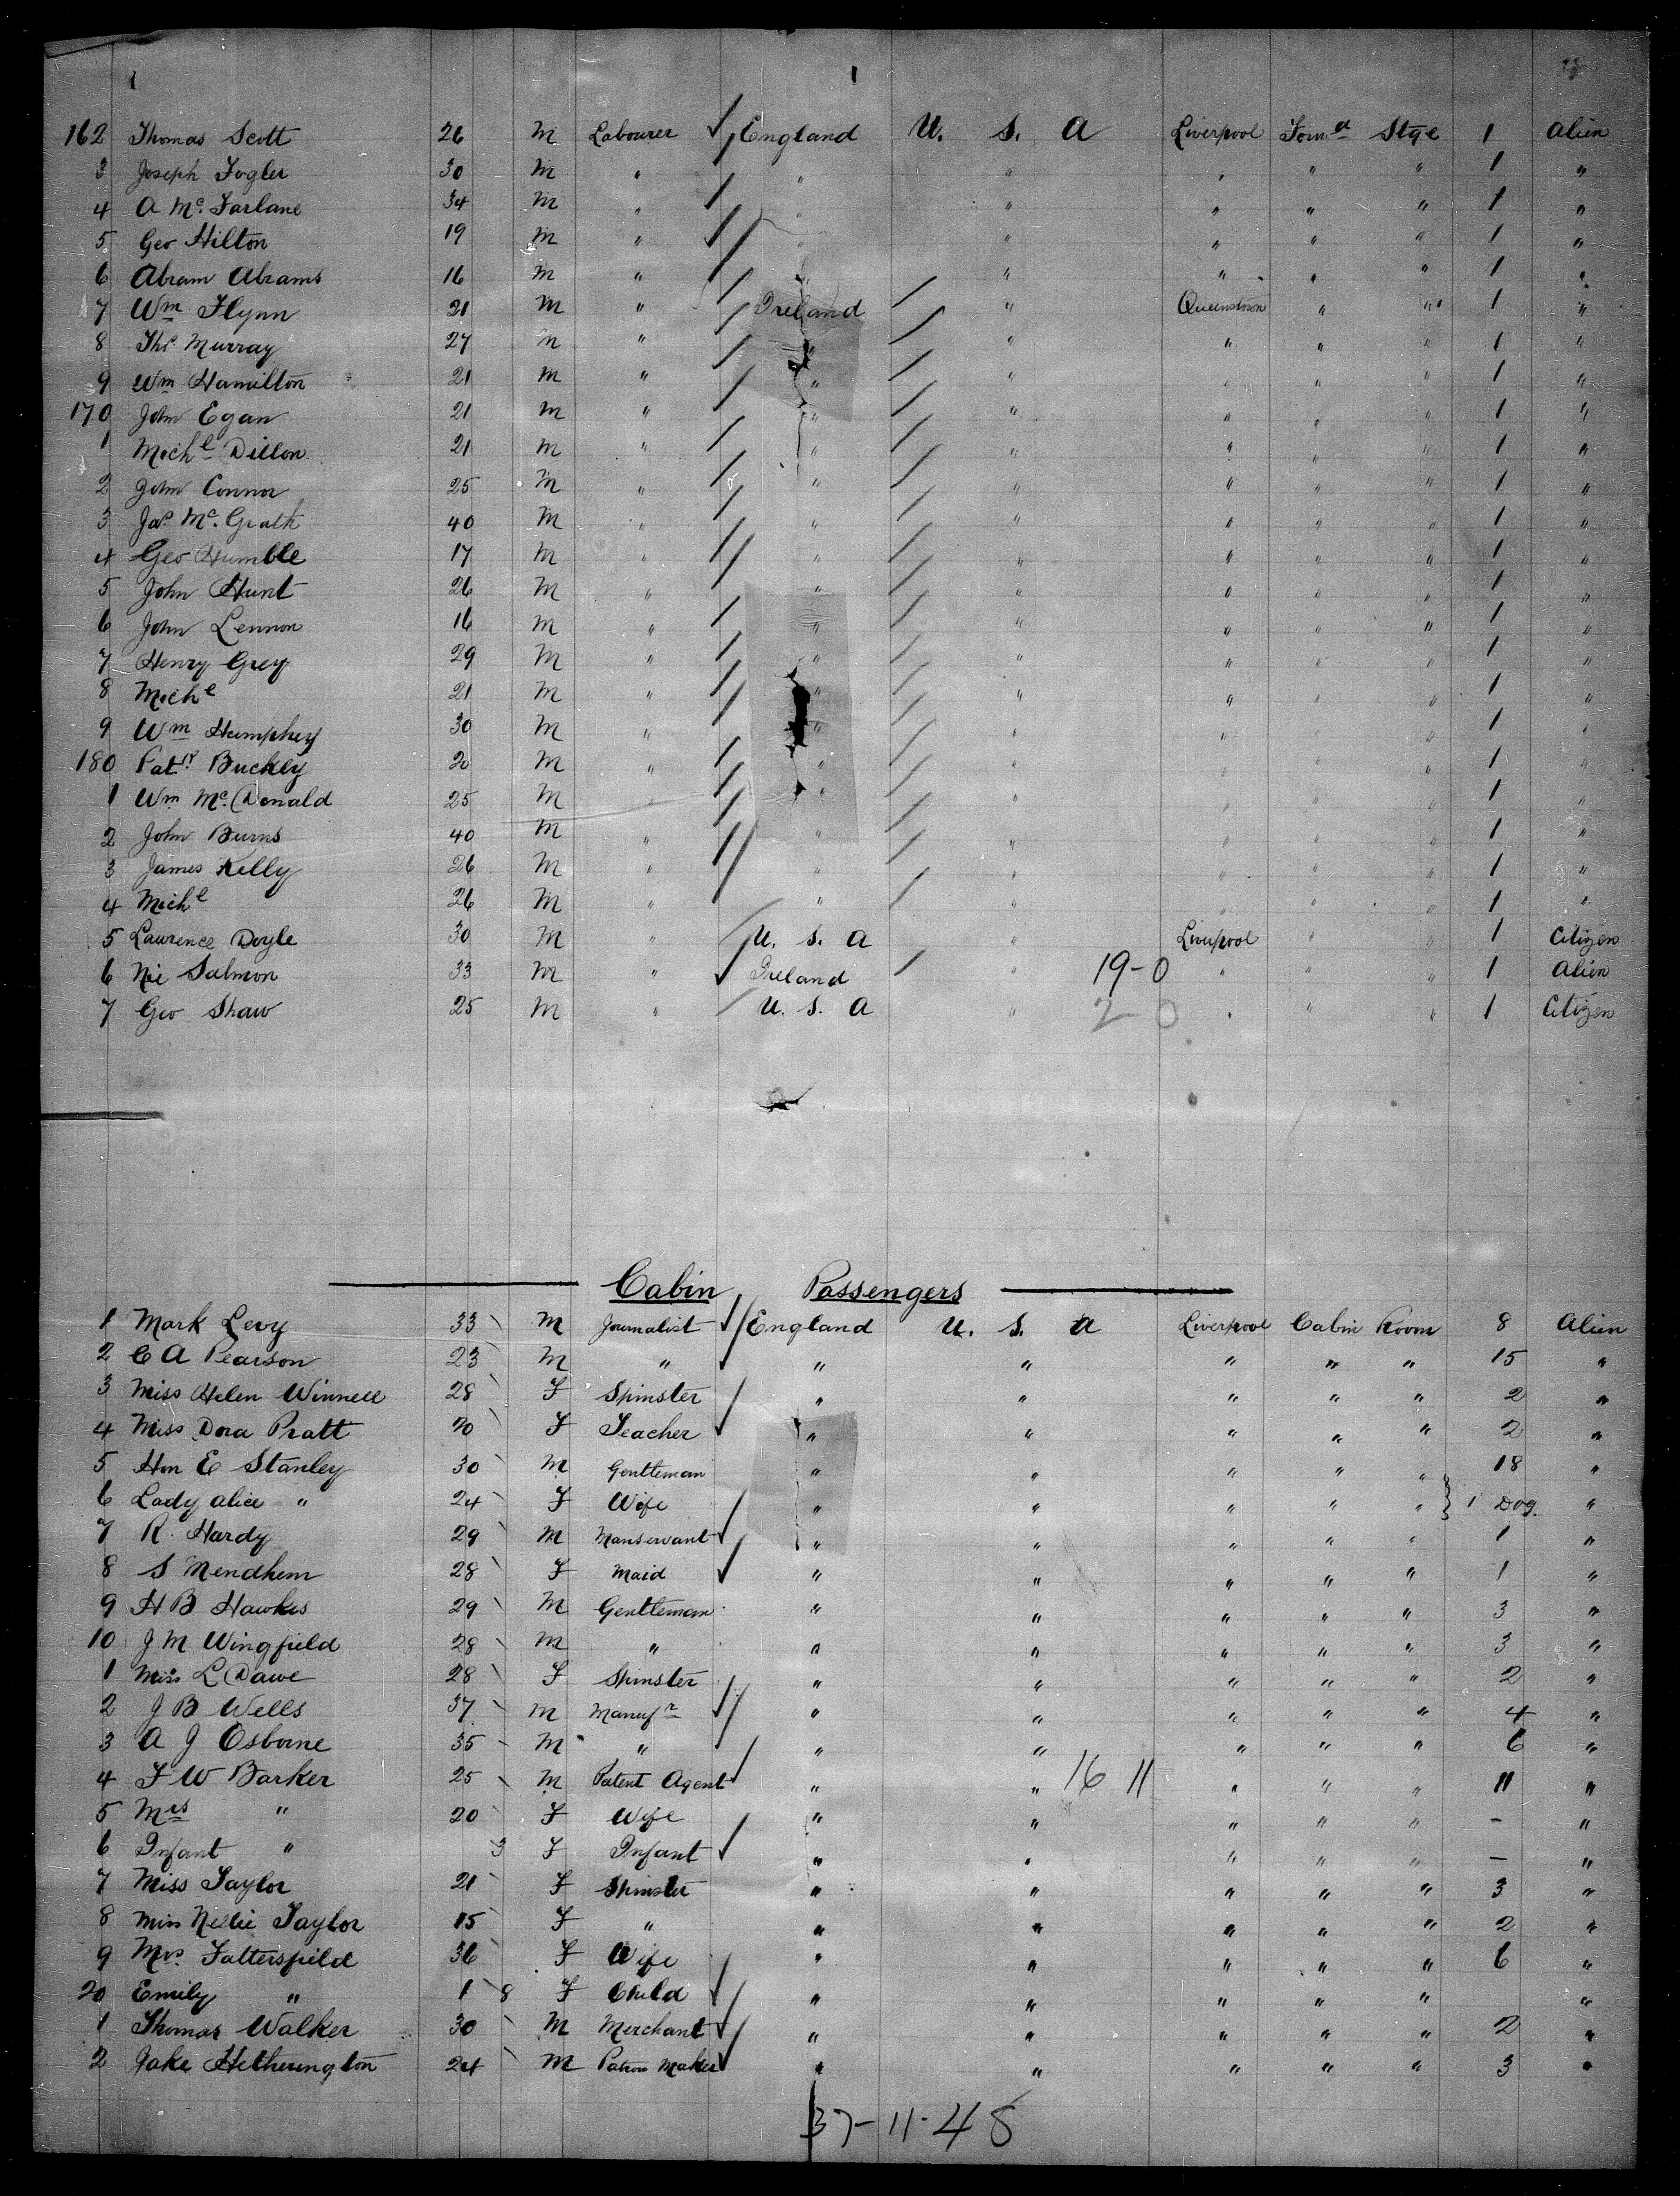 162 Thomas Scott 26 M Labourer England U. S. A Liverpool Forwd Stge 1 Alien
3 Joseph Fogler 30 M " " " " " " 1 "
4 A Mc Farlane 34 M " " " " " " 1 "
5 Geo Hilton 19 M " " " " " " 1 "
6 Abram Abrams 16 M " " " " " " 1 "
7 Wm Flynn 21 M " Ireland " Queenstown " " 1 "
8 Thos Murray 27 M " " " " " " 1 "
9 Wm Hamilton 21 M " " " " " " 1 "
170 John Egan 21 M " " " " " " 1 "
1 Michl Dillon 21 M " " " " " " 1 "
2 John Connor 25 M " " " " " " 1 "
3 Jas Mc Grath 40 M " " " " " " 1 "
4 Geo Humble 17 M " " " " " " 1 "
5 John Hunt 26 M " " " " " " 1 "
6 John Lennon 16 M " " " " " " 1 "
7 Henry Grey 29 M " " " " " " 1 "
8 Michl 21 M " " " " " " 1 "
9 Wm Humphey 30 M " " " " " " 1 "
180 Patk Buckley 20 M " " " " " " 1 "
1 Wm Mc Donald 25 M " " " " " " 1 "
2 John Burns 40 M " " " " " " 1 "
3 James Kelly 26 M " " " " " " 1 "
4 Michl 26 M " " " " " " 1 "
5 Lawrence Doyle 30 M " U. S. A " Liverpool " " 1 Citizen
6 Nie Salmon 33 M " Ireland " 19-0 " " " 1 Alien
7 Geo Shaw 25 M " U. S. A " 2 0 " " " 1 Citizen
Cabin Passengers
1 Mark Levy 33 M Journalist England U. S. A Liverpool Cabin Room 8 Alien
2 C A Pearson 23 M " " " " " " 15 "
3 Miss Helen Winnell 28 F Spinster " " " " " 2 "
4 Miss Dora Pratt 20 F Teacher " " " " " 2 "
5 Hon E Stanley 30 M Gentleman " " " " " 18 "
6 Lady Alice " 24 F Wife " " " " " 1 Dog. "
7 R. Hardy 29 M Manservant " " " " " 1 "
8 S Mendhem 28 F Maid " " " " " 1 "
9 H B Hawkes 29 M Gentleman " " " " " 3 "
10 J M Wingfield 28 M " " " " " " 3 "
1 Miss L Dawe 28 F Spinster " " " " " 2 "
2 J B Wells 37 M Manufr " " " " " 4 "
3 A J Osborne 35 M " " " " " " 6 "
4 F W Barker 25 M Patent Agent " " 16 11 " " " 11 "
5 Mrs " 20 F Wife " " " " " - "
6 Infant " 3 F Infant " " " " " - "
7 Miss Taylor 21 F Spinster " " " " " 3 "
8 Miss Nellie Taylor 15 F " " " " " " 2 "
9 Mrs. Fattersfield 36 F Wife " " " " " 6 "
20 Emily " 1 8 F Child " " " " " "
1 Thomas Walker 30 M Merchant " " " " " 2 "
2 Jake Hetherington 24 M Patron Maker " " " " " 3 "
37-11-48